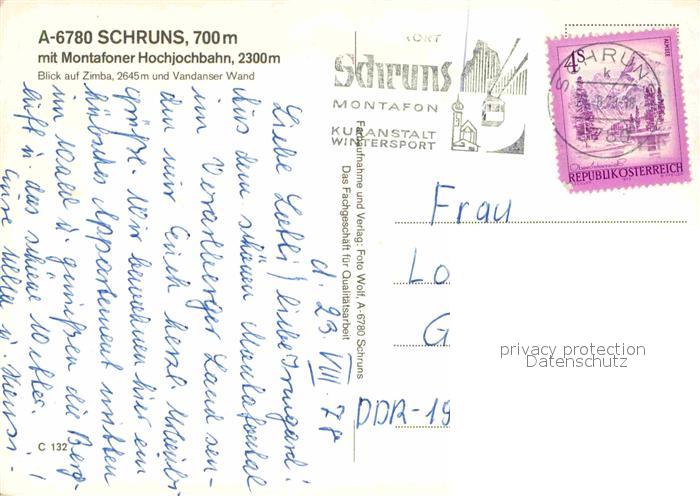 A-6780 SCHRUNS, 700 m
mit Montafoner Hochjochbahn, 2300 m
Blick auf Zimba, 2645 m und Vandanser Wand
KORT
Schruns
MONTAFON
KURANSTALT
WINTERSPORT
SCHRUNS
4S
REPUBLIK ÖSTERREICH
d. 23. VIII. 78
Liebe Lobbi, liebe Irmgard!
Aus dem schönen Montafontal
im Vorarlberger Land sen-
den wir Euch herzl. Urlaubs
grüße. Wir bewohnen hier ein
hübsches Appartement mitten
im Wald u. genießen die Berg-
luft u. das schöne Wetter.
Eure
Farbaufnahme und Verlag: Foto Wolf, A-6780 Schruns
Das Fachgeschäft für Qualitätsarbeit
Frau
Lo
G
DDR-19
privacy protection
Datenschutz
C 132